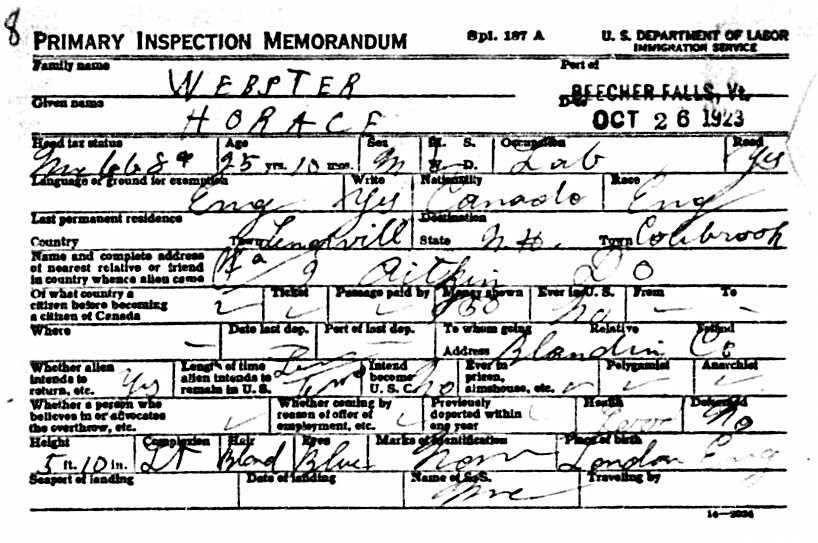 8
PRIMARY INSPECTION MEMORANDUM Spl. 187 A U. S. DEPARTMENT OF LABOR
IMMIGRATION SERVICE
Family name WEBSTER Port of BEECHER FALLS, Vt.
Given name HORACE Date OCT 26 1923
Head tax status Age Sex M. S. Occupation Read
25 yrs. 10 mos. M W. D. Lab Yes
Language or ground for exemption Write Nationality Race
Eng Yes Canada Eng
Last permanent residence Destination
Country Town State N.H. Town Colebrook
Name and complete address
of nearest relative or friend
in country whence alien came Aitkin Do
Of what country a Ticket Passage paid by Money shown Ever in U.S. From To
citizen before becoming
a citizen of Canada No
Where Date last dep. Port of last dep. To whom going Relative Friend
Address Blandin Co
Whether alien Length of time Intend Ever in Polygamist Anarchist
intends to alien intends to become prison,
return, etc. Yes remain in U.S. U.S.C. No almshouse, etc.
Whether a person who Whether coming by Previously Health Deformed
believes in or advocates reason of offer of deported within
the overthrow, etc. employment, etc. one year No
Height Complexion Hair Eyes Marks of identification Place of birth
5 ft. 10 in. Lt Blond Blue None London Eng
Seaport of landing Date of landing Name of S.S. Traveling by
14—2024